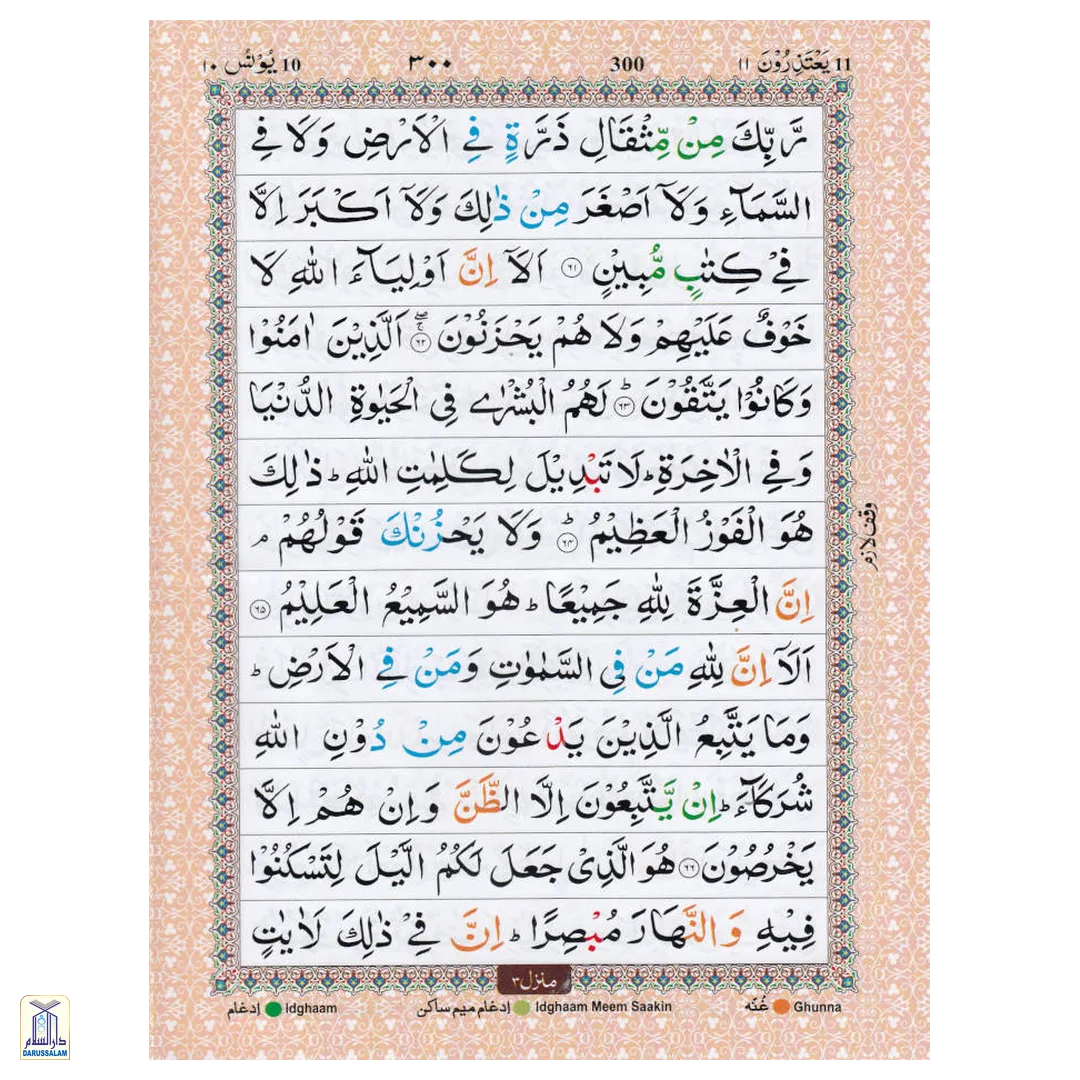 11 يَعْتَذِرُوْنَ ١١ 300 ٣٠٠ 10 يُوْنُس ١٠
رَّبِّكَ مِنْ مِّثْقَالِ ذَرَّةٍ فِي الْاَرْضِ وَلَا فِي
السَّمَآءِ وَلَآ اَصْغَرَ مِنْ ذٰلِكَ وَلَآ اَكْبَرَ اِلَّا
فِيْ كِتٰبٍ مُّبِيْنٍ ﴿٦١﴾ اَلَآ اِنَّ اَوْلِيَآءَ اللّٰهِ لَا
خَوْفٌ عَلَيْهِمْ وَلَا هُمْ يَحْزَنُوْنَ ﴿٦٢﴾ۚۖ اَلَّذِيْنَ اٰمَنُوْا
وَكَانُوْا يَتَّقُوْنَ ﴿٦٣﴾ؕ لَهُمُ الْبُشْرٰي فِي الْحَيٰوةِ الدُّنْيَا
وَفِي الْاٰخِرَةِ ؕ لَا تَبْدِيْلَ لِكَلِمٰتِ اللّٰهِ ؕ ذٰلِكَ
هُوَ الْفَوْزُ الْعَظِيْمُ ﴿٦٤﴾ؕ وَلَا يَحْزُنْكَ قَوْلُهُمْ ۘ
وقف لازم
اِنَّ الْعِزَّةَ لِلّٰهِ جَمِيْعًا ؕ هُوَ السَّمِيْعُ الْعَلِيْمُ ﴿٦٥﴾
اَلَآ اِنَّ لِلّٰهِ مَنْ فِي السَّمٰوٰتِ وَمَنْ فِي الْاَرْضِ ؕ
وَمَا يَتَّبِعُ الَّذِيْنَ يَدْعُوْنَ مِنْ دُوْنِ اللّٰهِ
شُرَكَآءَ ؕ اِنْ يَّتَّبِعُوْنَ اِلَّا الظَّنَّ وَاِنْ هُمْ اِلَّا
يَخْرُصُوْنَ ﴿٦٦﴾ هُوَ الَّذِيْ جَعَلَ لَكُمُ الَّيْلَ لِتَسْكُنُوْا
فِيْهِ وَالنَّهَارَ مُبْصِرًا ؕ اِنَّ فِيْ ذٰلِكَ لَاٰيٰتٍ
منزل ٣
إدغام Idghaam إدغام ميم ساكن Idghaam Meem Saakin غُنّه Ghunna
دار السلام
DARUSSALAM